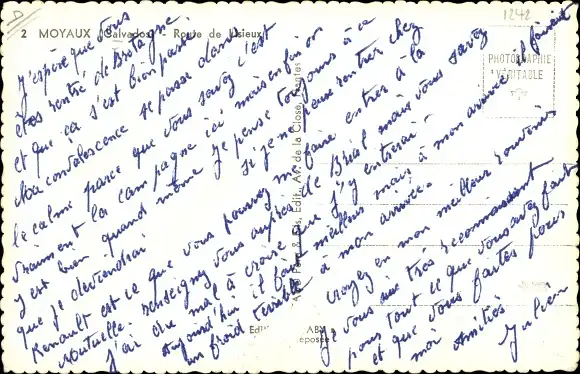 2 MOYAUX (Calvados) Route de Lisieux
1242
PHOTOGRAPHIE
VÉRITABLE
J'espère que vous
etes rentré de Bretagne.
et que ça s'est bien passé
Ma convalescence se passe dans
le calme parce que vous savez c'est
vraiment la campagne ici mais enfin on
y est bien quand même je pense toujours à ce
que je deviendrai si je ne peux rentrer chez
Renault est ce que vous pouvez me faire entrer à la
Mutuelle; renseignez vous auprès de Brial mais vous savez
j'ai du mal à croire que j'y entrerai
Aujourd'hui il fait meilleur mais à mon arrivée il faisait
un froid terrible à mon arrivée.
croyez en mon meilleur souvenir
je vous suis très reconnaissant
pour tout ce que vous avez fait
et que vous faites pour
moi Amitiés
Julien
Edit., Av. de la Close, Nantes